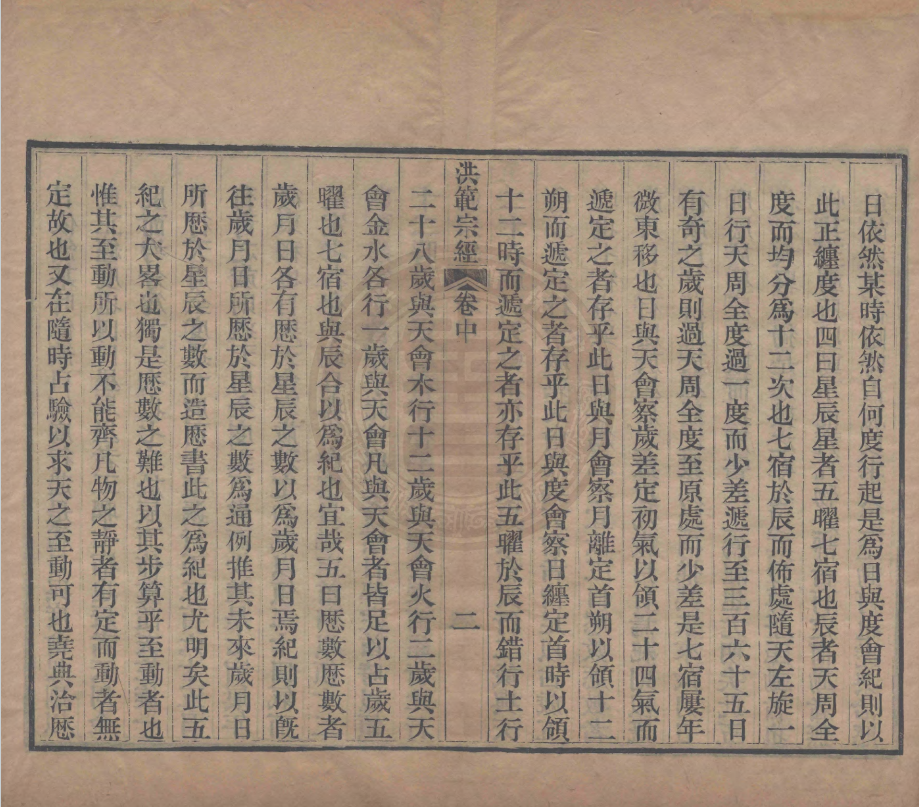 日依然某時依然自何度行起是爲日與度會紀則以
此正纏度也四曰星辰星者五曜七宿也辰者天周全
度而均分爲十二次也七宿於辰而佈處隨天左旋一
日行天周全度過一度而少差遞行至三百六十五日
有奇之歲則過天周全度至原處而少差是七宿屢年
微東移也日與天會察歲差定初氣以領二十四氣而
遞定之者存乎此日與月會察月離定首朔以領十二
朔而遞定之者存乎此日與度會察日纏定首時以領
十二時而遞定之者亦存乎此五曜於辰而錯行土行
洪範宗經 卷中 二
二十八歲與天會木行十二歲與天會火行二歲與天
會金水各行一歲與天會凡與天會者皆足以占歲五
曜也七宿也與辰合以爲紀也宜哉五曰厯數厯數者
歲月日各有厯於星辰之數以爲歲月日焉紀則以旣
往歲月日所厯於星辰之數爲通例推其未來歲月日
所厯於星辰之數而造厯書此之爲紀也尤明矣此五
紀之大畧也獨是厯數之難也以其步算乎至動者也
惟其至動所以動不能齊凡物之靜者有定而動者無
定故也又在隨時占驗以求天之至動可也堯典治厯